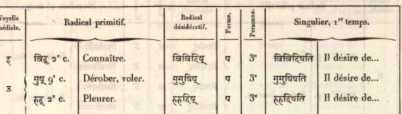 Voyelle médiale. Radical primitif. Radical désidératif. Forme. Personne. Singulier, 1er temps.
इ विद् 2e c. Connaître. विविदिष् प 3e विविदिषति Il désire de...
उ गुष् 9e c. Dérober, voler. गुगुषिष् प 3e गुगुषिषति Il désire de...
रुद् 2e c. Pleurer. रुरुदिष् प 3e रुरुदिषति Il désire de...